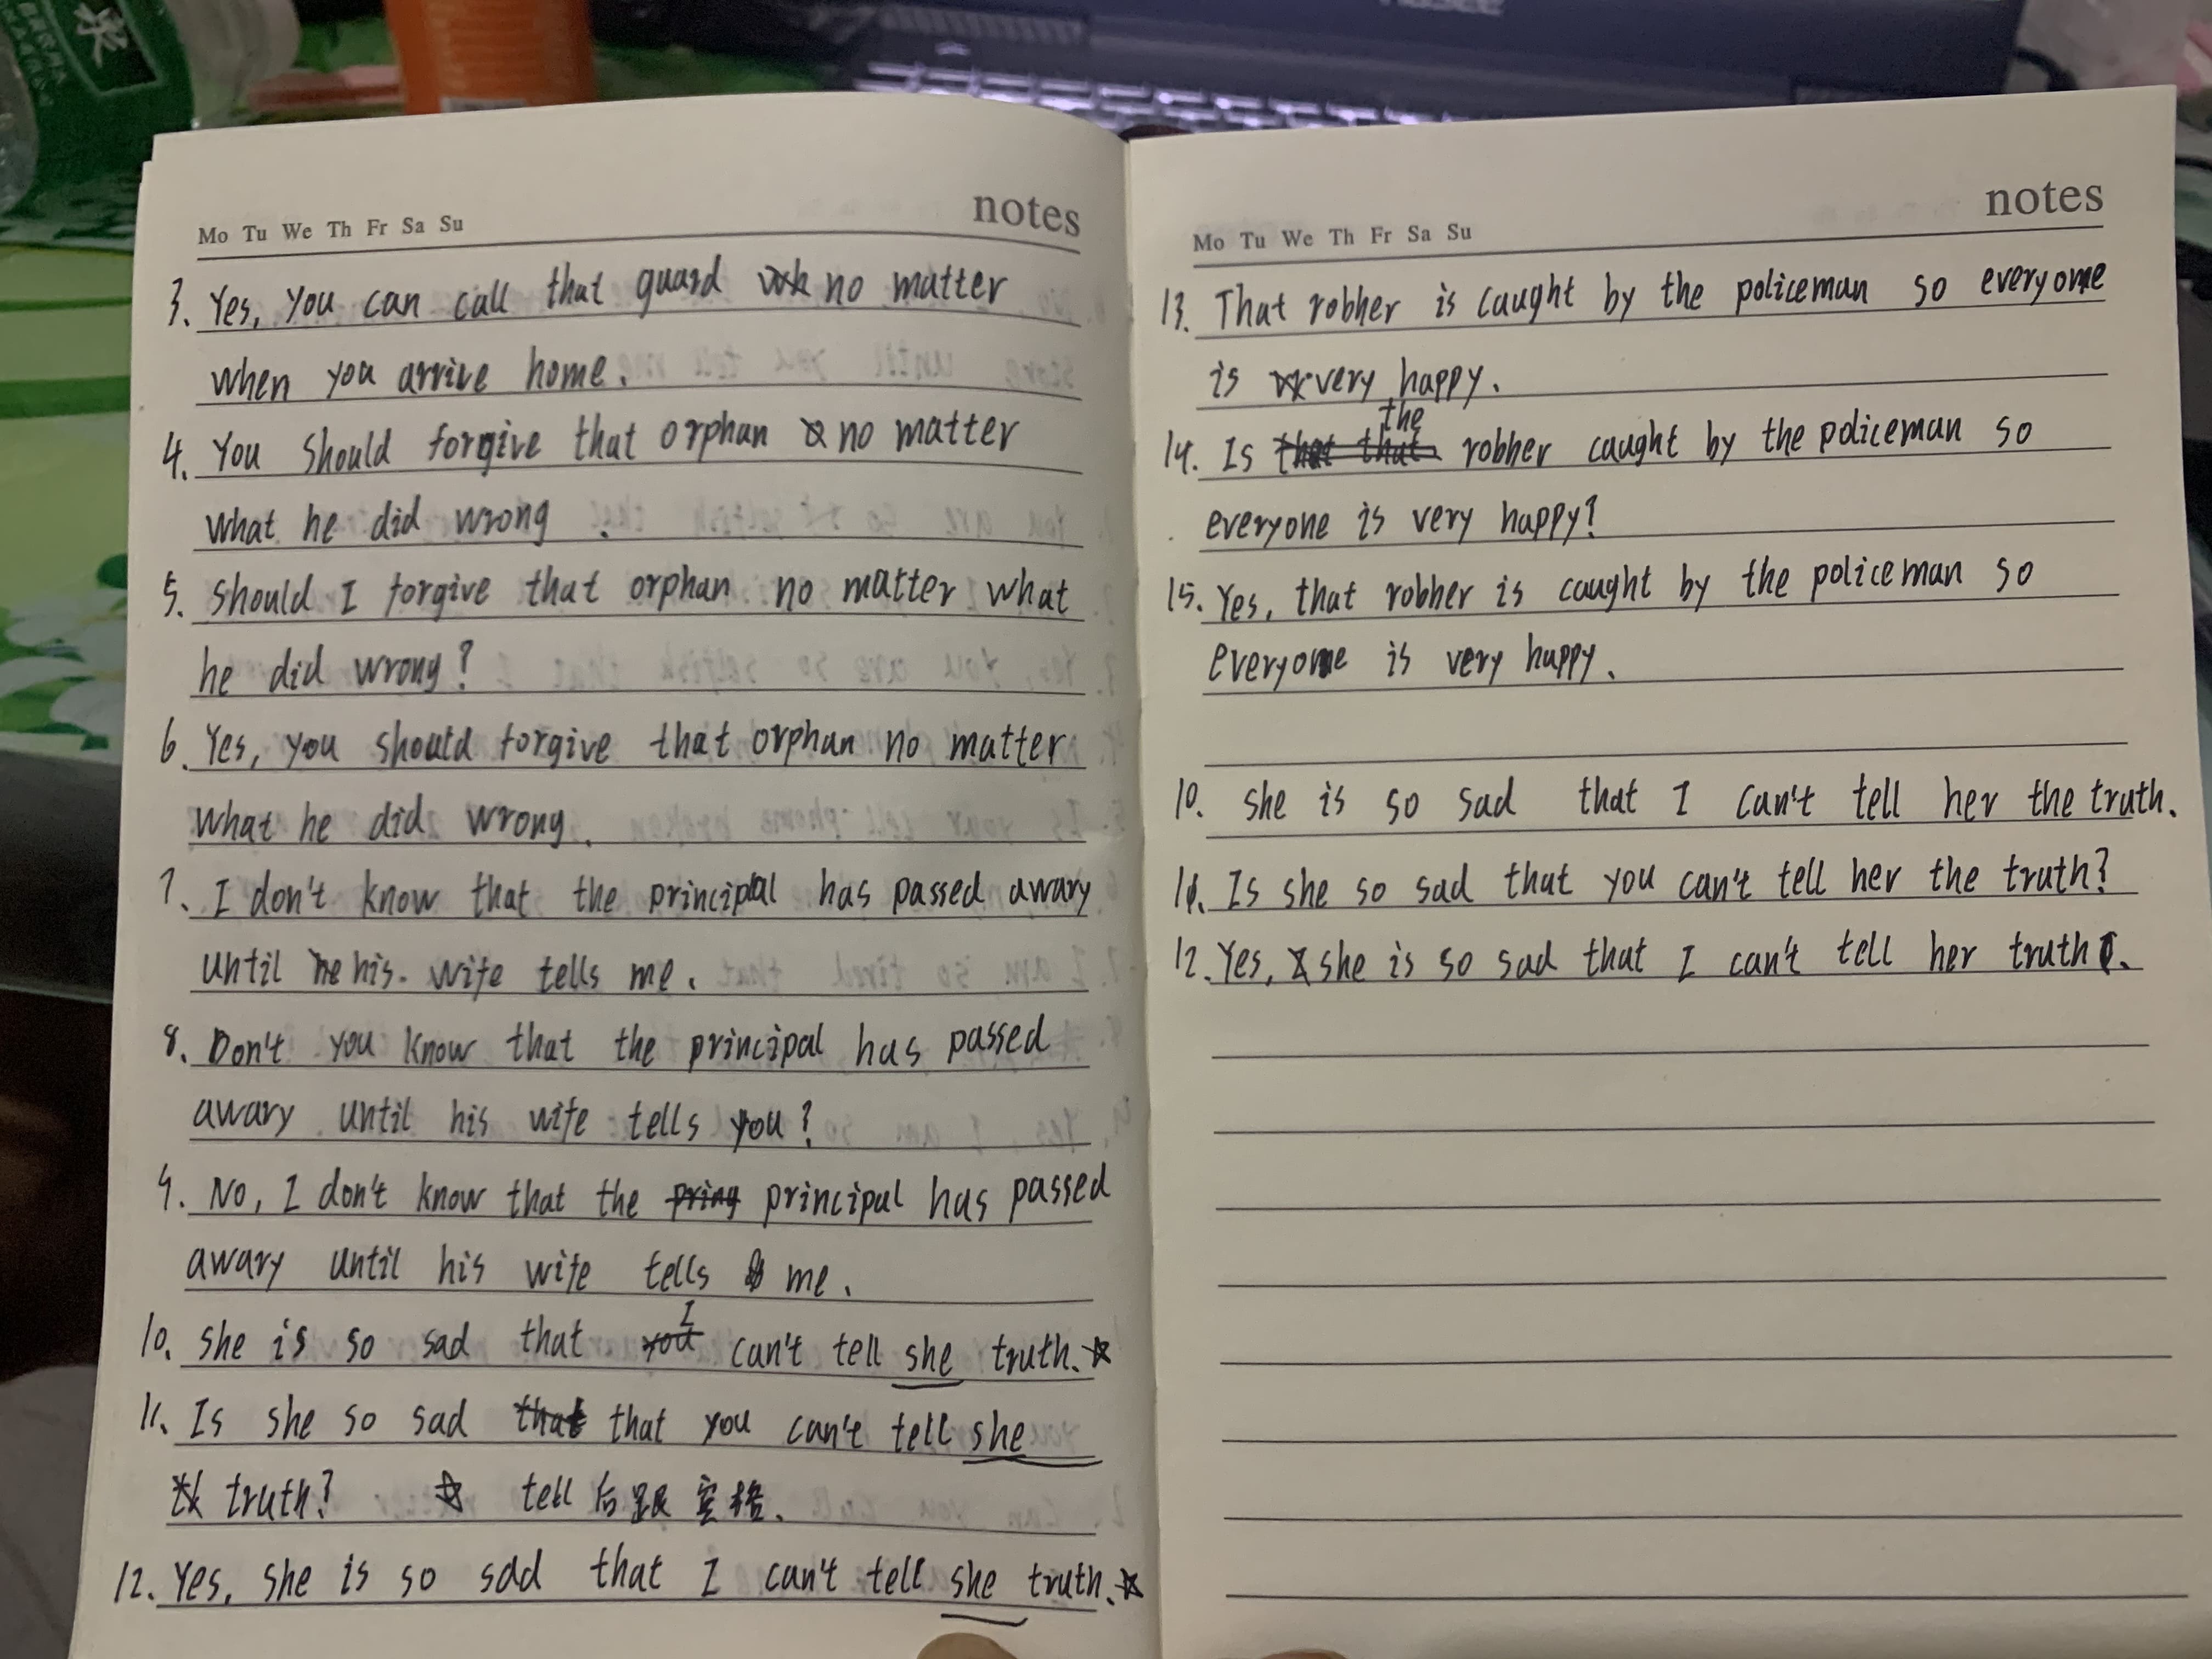 Mo Tu We Th Fr Sa Su notes
3. Yes, you can call that guard no matter
when you arrive home.
4. You should forgive that orphan no matter
what he did wrong.
5. should I forgive that orphan no matter what
he did wrong?
6. Yes, you should forgive that orphan no matter
what he did wrong.
7. I don't know that the principal has passed awary
until his wife tells me.
8. Don't you know that the principal has passed
awary until his wife tells you?
9. No, I don't know that the pring principal has passed
awary until his wife tells me.
10. she is so sad that you I can't tell she truth.☆
11. Is she so sad that that you can't tell she
truth? ☆ tell 后跟宾格.
12. Yes, she is so sad that I can't tell she truth.☆
Mo Tu We Th Fr Sa Su notes
13. That robher is caught by the policeman so everyone
is very happy.
14. Is that that the robher caught by the policeman so
everyone is very happy?
15. Yes, that robher is caught by the policeman so
everyone is very happy.
10. she is so sad that I can't tell her the truth.
11. Is she so sad that you can't tell her the truth?
12. Yes, she is so sad that I can't tell her truth.